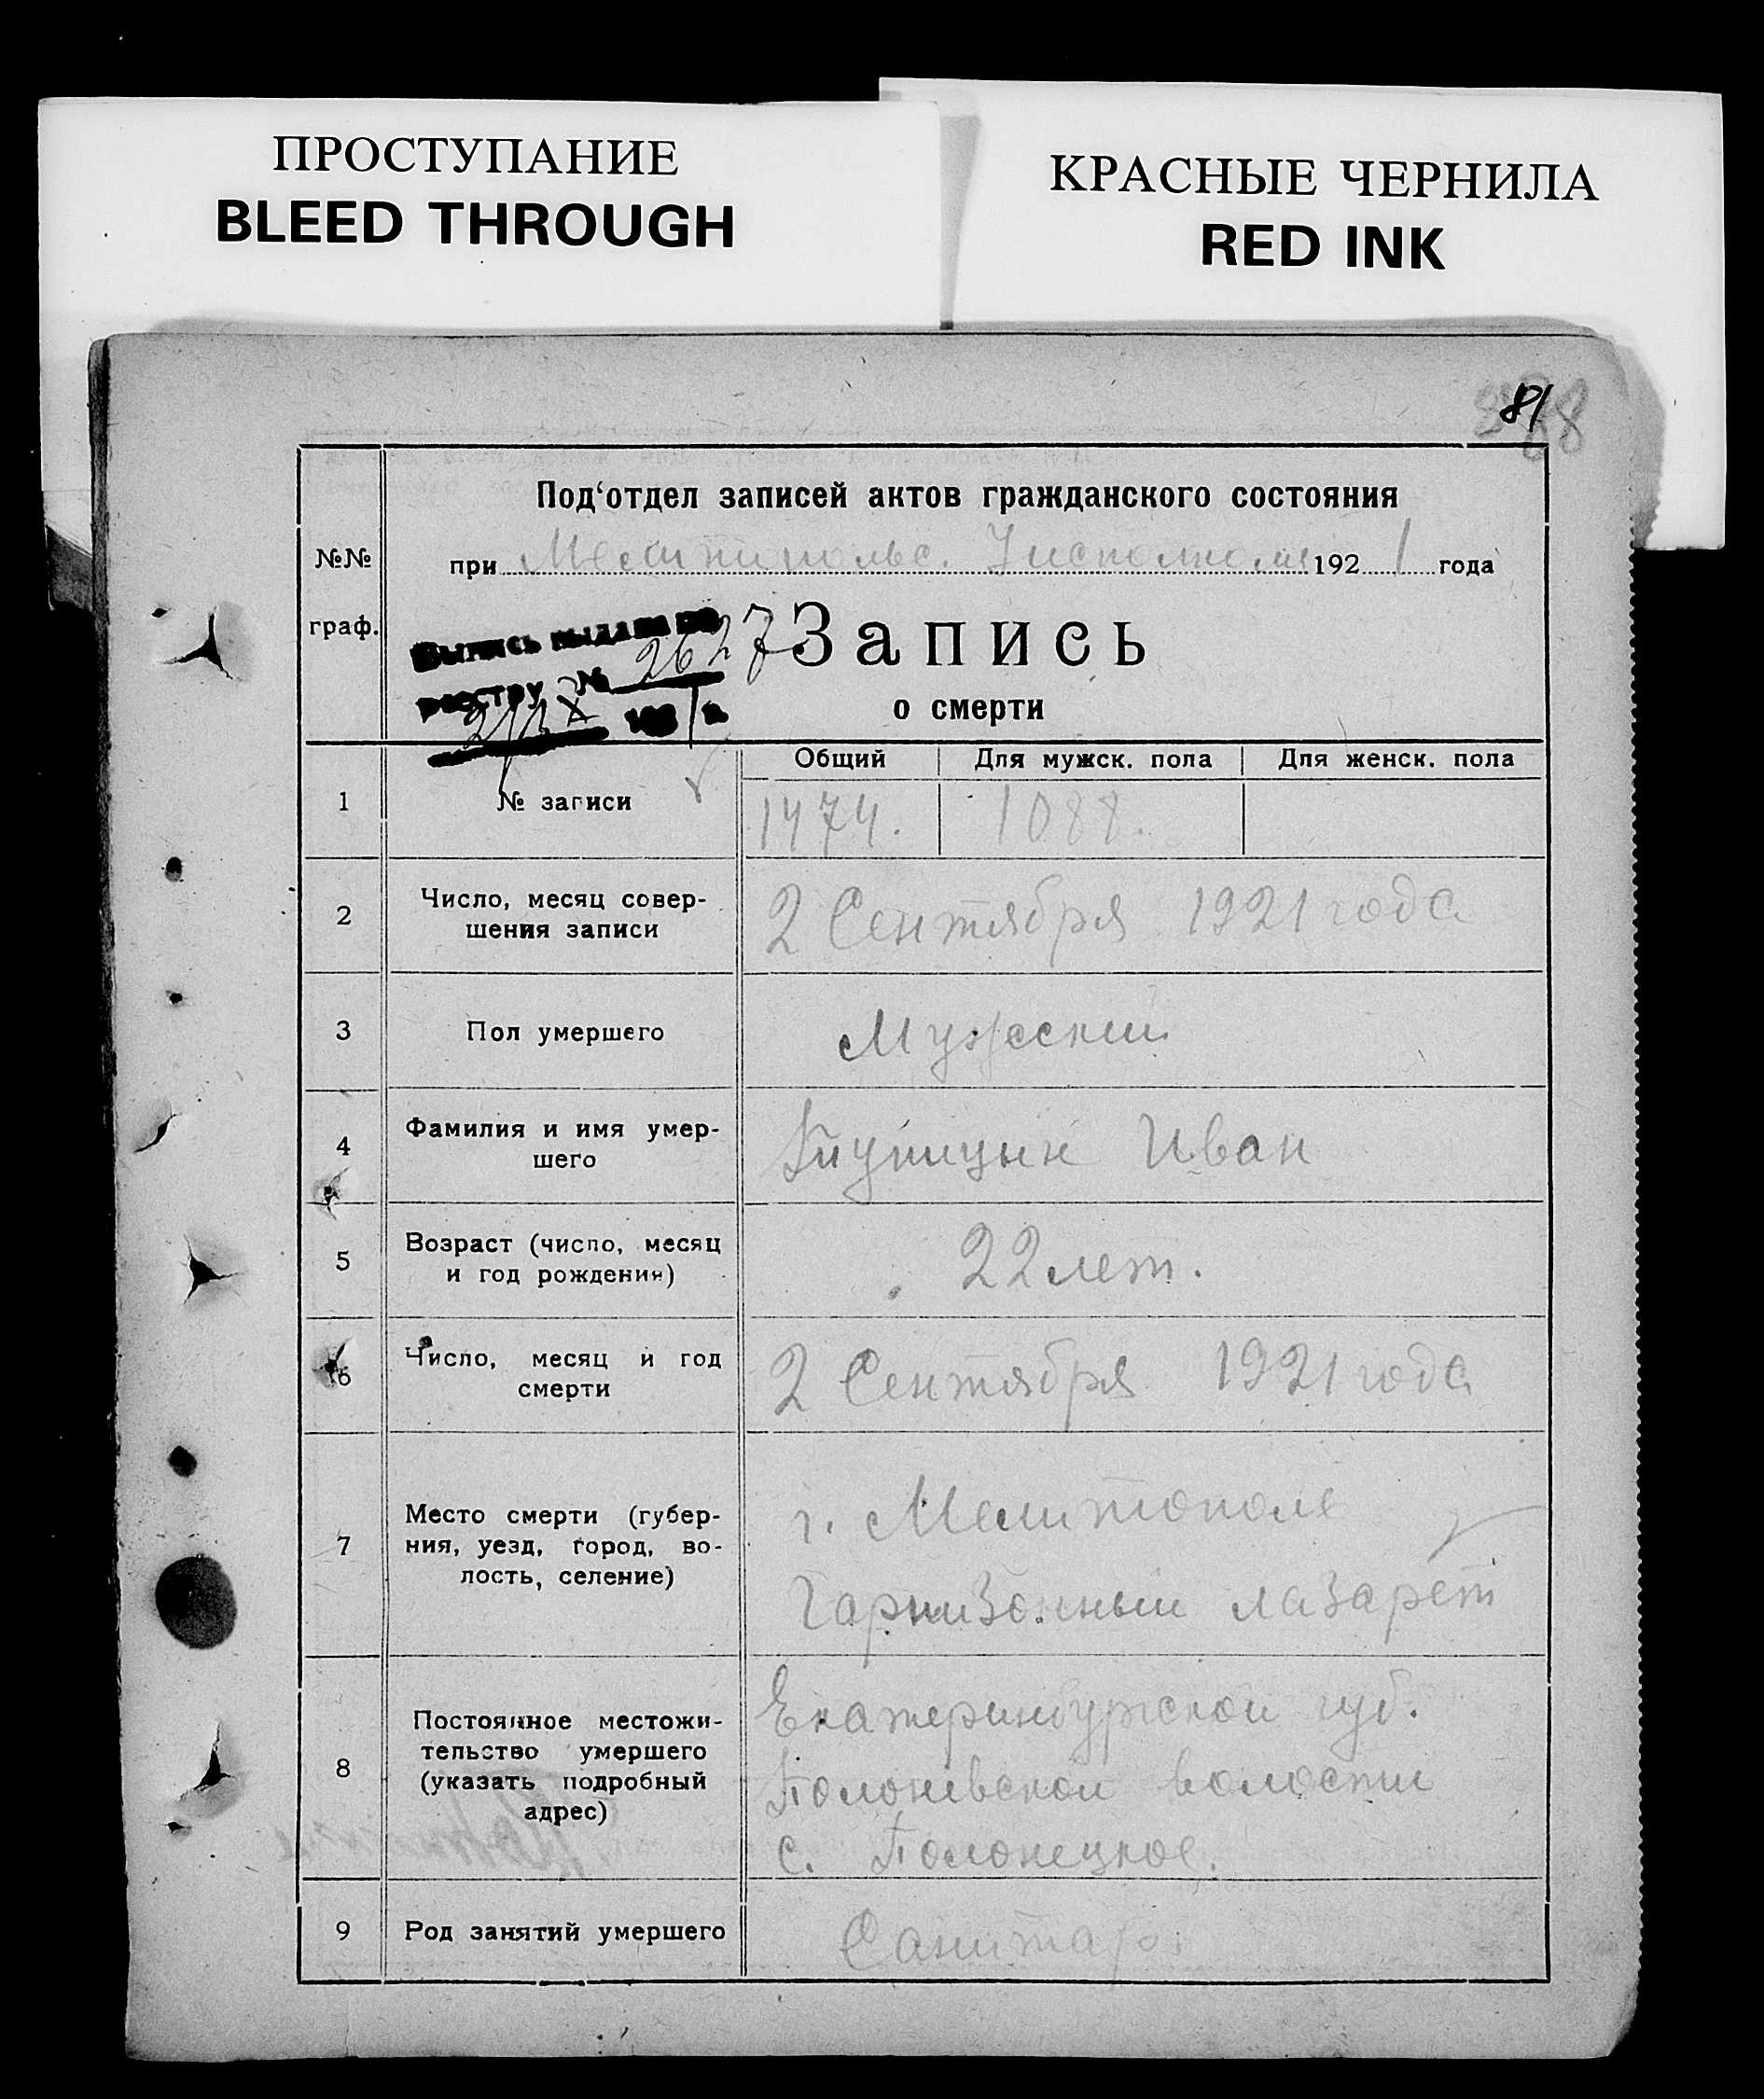 ПРОСТУПАНИЕ
BLEED THROUGH
КРАСНЫЕ ЧЕРНИЛА
RED INK
81
Под‘отдел записей актов гражданского состояния
№№
граф.
при Мелитипольс. Уисполкоме 1921 года
Выпись выдана по
реестру № 2627
Запись
о смерти
Общий Для мужск. пола Для женск. пола
1 № записи 1474. 1088.
2 Число, месяц совер-
шения записи
2 Сентября 1921 года
3 Пол умершего Мужский
4 Фамилия и имя умер-
шего
Иван
5 Возраст (число, месяц
и год рождения)
22 лет.
6 Число, месяц и год
смерти
2 Сентября 1921 года
7 Место смерти (губер-
ния, уезд, город, во-
лость, селение)
г. Мелитополь
Гарнизонный лазарет
8 Постоянное местожи-
тельство умершего
(указать подробный
адрес)
Екатеринбургской губ.
волости
с.
9 Род занятий умершего Санитар